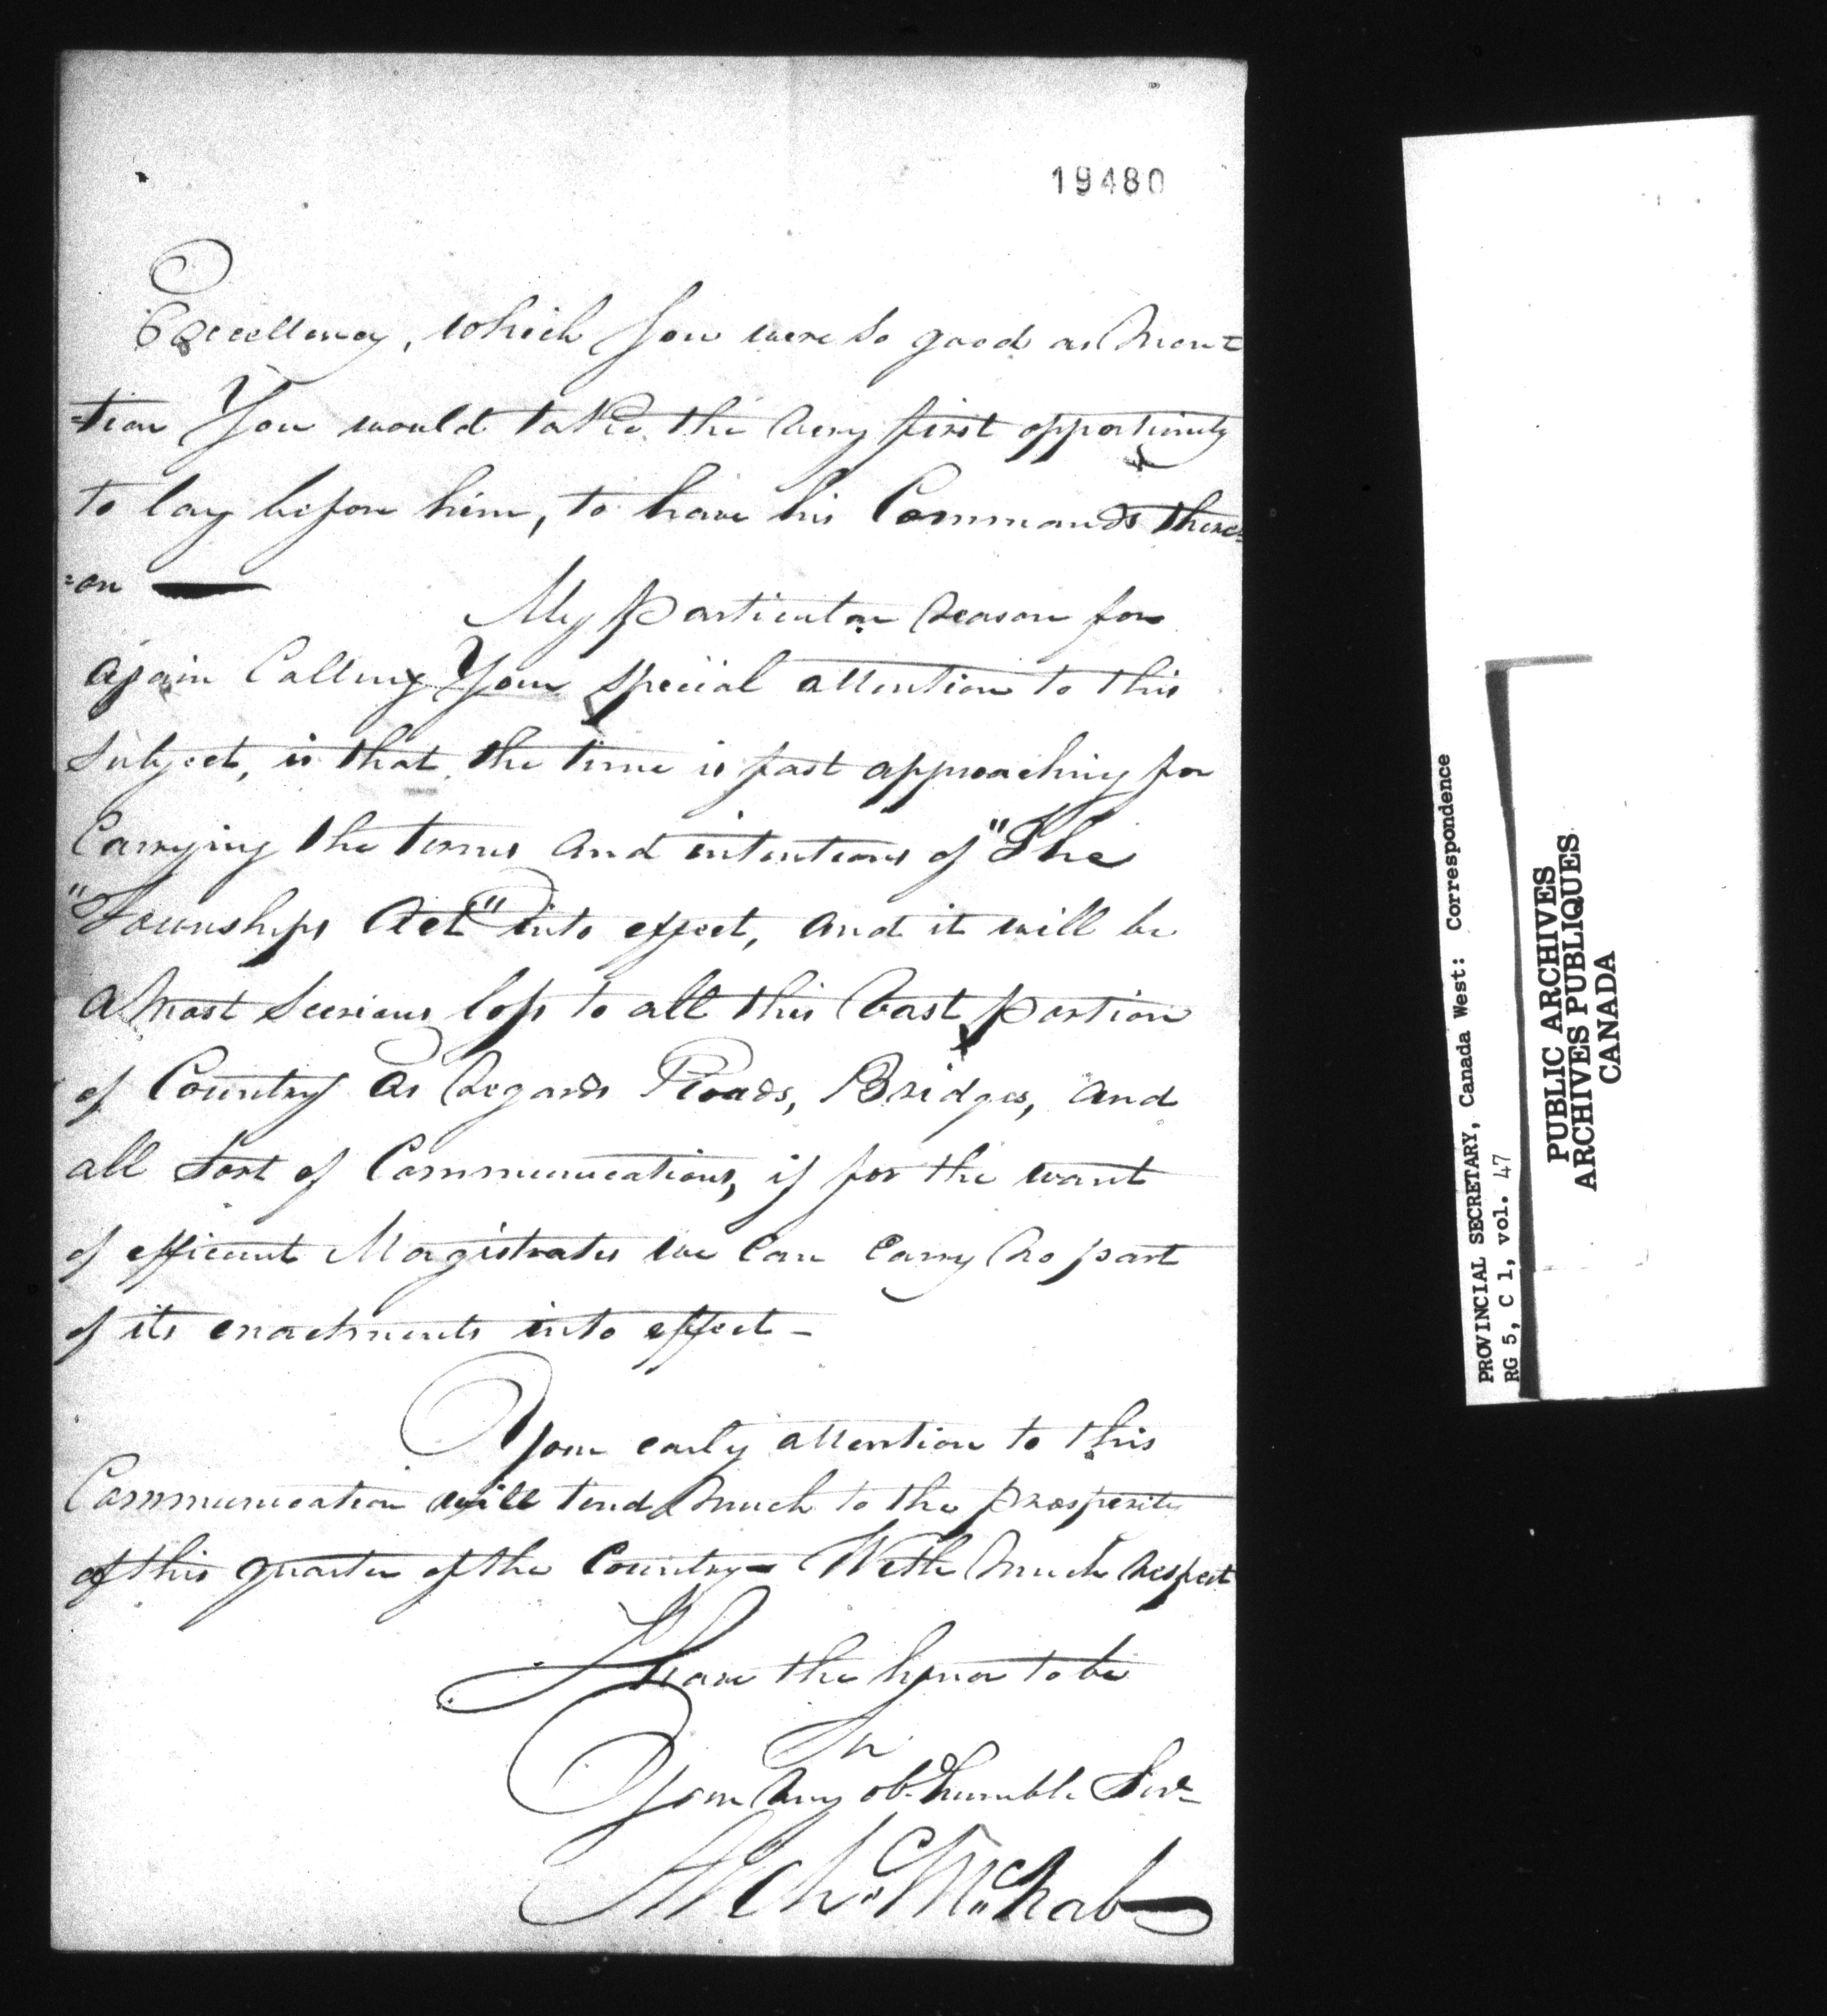 19480
Excellency, which You were so good as Men=
=tion You would take the very first opportunity
to lay before him, to have his Commands there=
=on —
My particular reason for
again Calling Your special attention to this
subject, is that the time is fast approaching for
Carrying the terms and intentions of "The
"Townships Act" into effect, and it will be
a most Seerious loss to all this vast portion
of Country as regards Roads, Bridges, and
all Sort of Communications, if for the want
of efficient Magistrates we Can Carry no part
of its enactments into effect —
Your early attention to this
Communication will tend much to the prosperity
of this quarter of the Country — With much respect
I have the honor to be
Sir
Your very ob. humble Servt
Archd. McNab
PROVINCIAL SECRETARY, Canada West: Correspondence
RG 5, C 1, vol. 47
PUBLIC ARCHIVES
ARCHIVES PUBLIQUES
CANADA